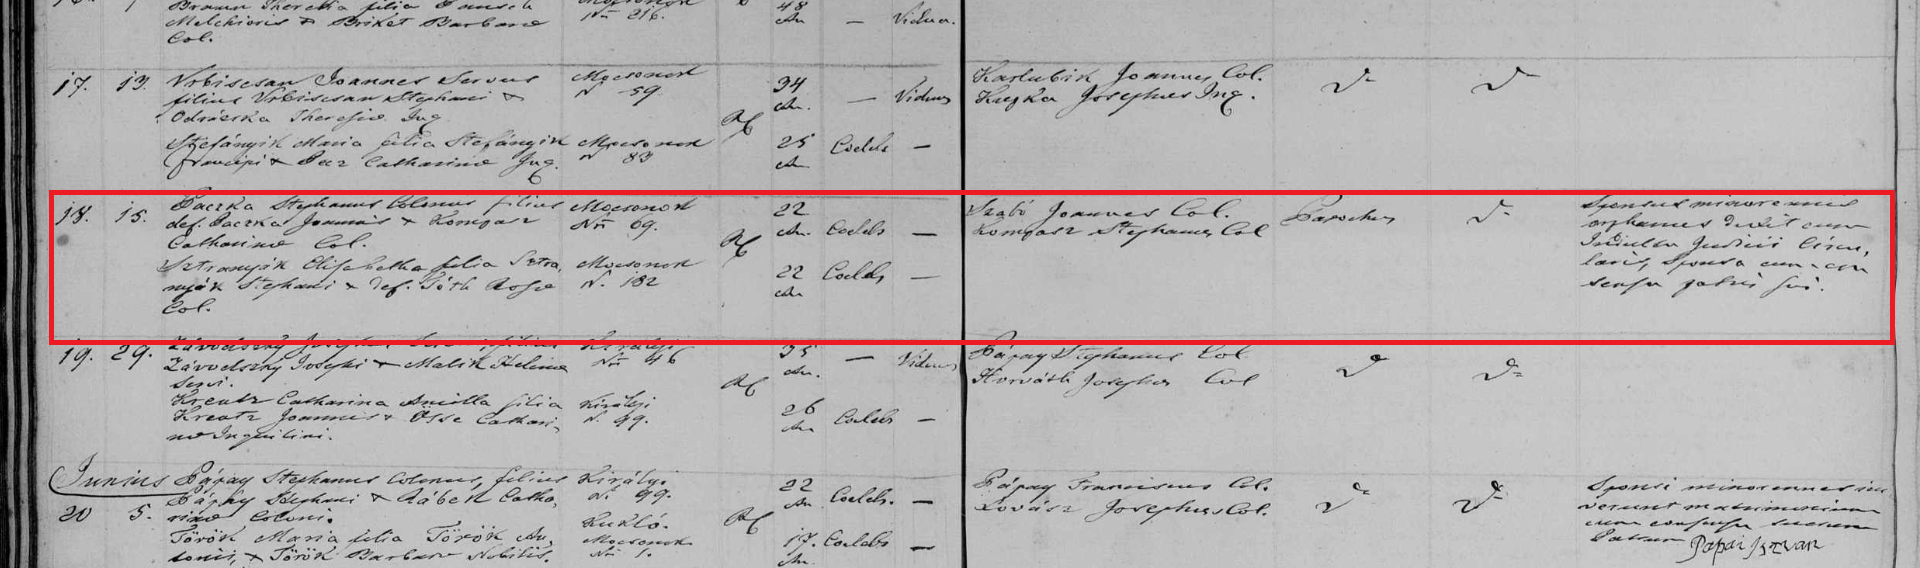 Melchioris & Briket Barbara
Nri 216.
48
An
—
Vidua.
Col.
17. 13. Vrbiscsan Joannes Servus
filius Vrbiscsan Stephani &
Theresiæ Inq
Mocsonok
N 59.
34
An.
—
Viduus
Joannes Col.
Josephus Inq.
RC
Stefányik Maria filia Stefányik
Francisci & Catharinæ Inq.
Mocsonok
N 83
25
An
Coelebs
—
18. 15. Paczka Stephanus Colonus filius
def. Paczka Joannis & Kompasz
Catharinæ Col.
Mocsonok
Nri 69.
22
An.
Coelebs
—
RC
Szabó Joannes Col.
Kompasz Stephanus Col
Parochus
Sponsus minorennis
orphanus duxit cum
Indultu Judicii Circu,
laris, Sponsa cum con
sensu patris sui.
Sztranyák Elisabetha filia Sztra,
nyák Stephani & def. Tóth Rosæ
Col.
Mocsonok
N. 182
22
An
Coelebs
—
19. 29. Závodszky Josephus filius
Závodszky Josephi & Malik Helenæ
Servi.
Királyi
Nri 46
35
An.
—
Viduus
RC
Pápay Stephanus Col
Horváth Josephus Col
Kreutz Catharina Ancilla filia
Kreutz Joannis & Össe Cathari,
næ Inquilini.
Királyi
N. 99.
26
An
Coelebs
—
Junius
20 5.
Pápay Stephanus Colonus, filius
Pápay Stephani & Rábek Catha,
rinæ Coloni.
Királyi
N. 99.
22
An
Coelebs.
—
RC
Pápay Franciscus Col.
Kovács Josephus Col.
Sponsi minorennes in
verunt matrimonium
cum consensu suorum
Patrum
Pápai István
Török Maria filia Török An,
tonii, & Török Barbaræ Nobilis.
Mocsonok
Nri 1.
17.
An.
Coelebs
—